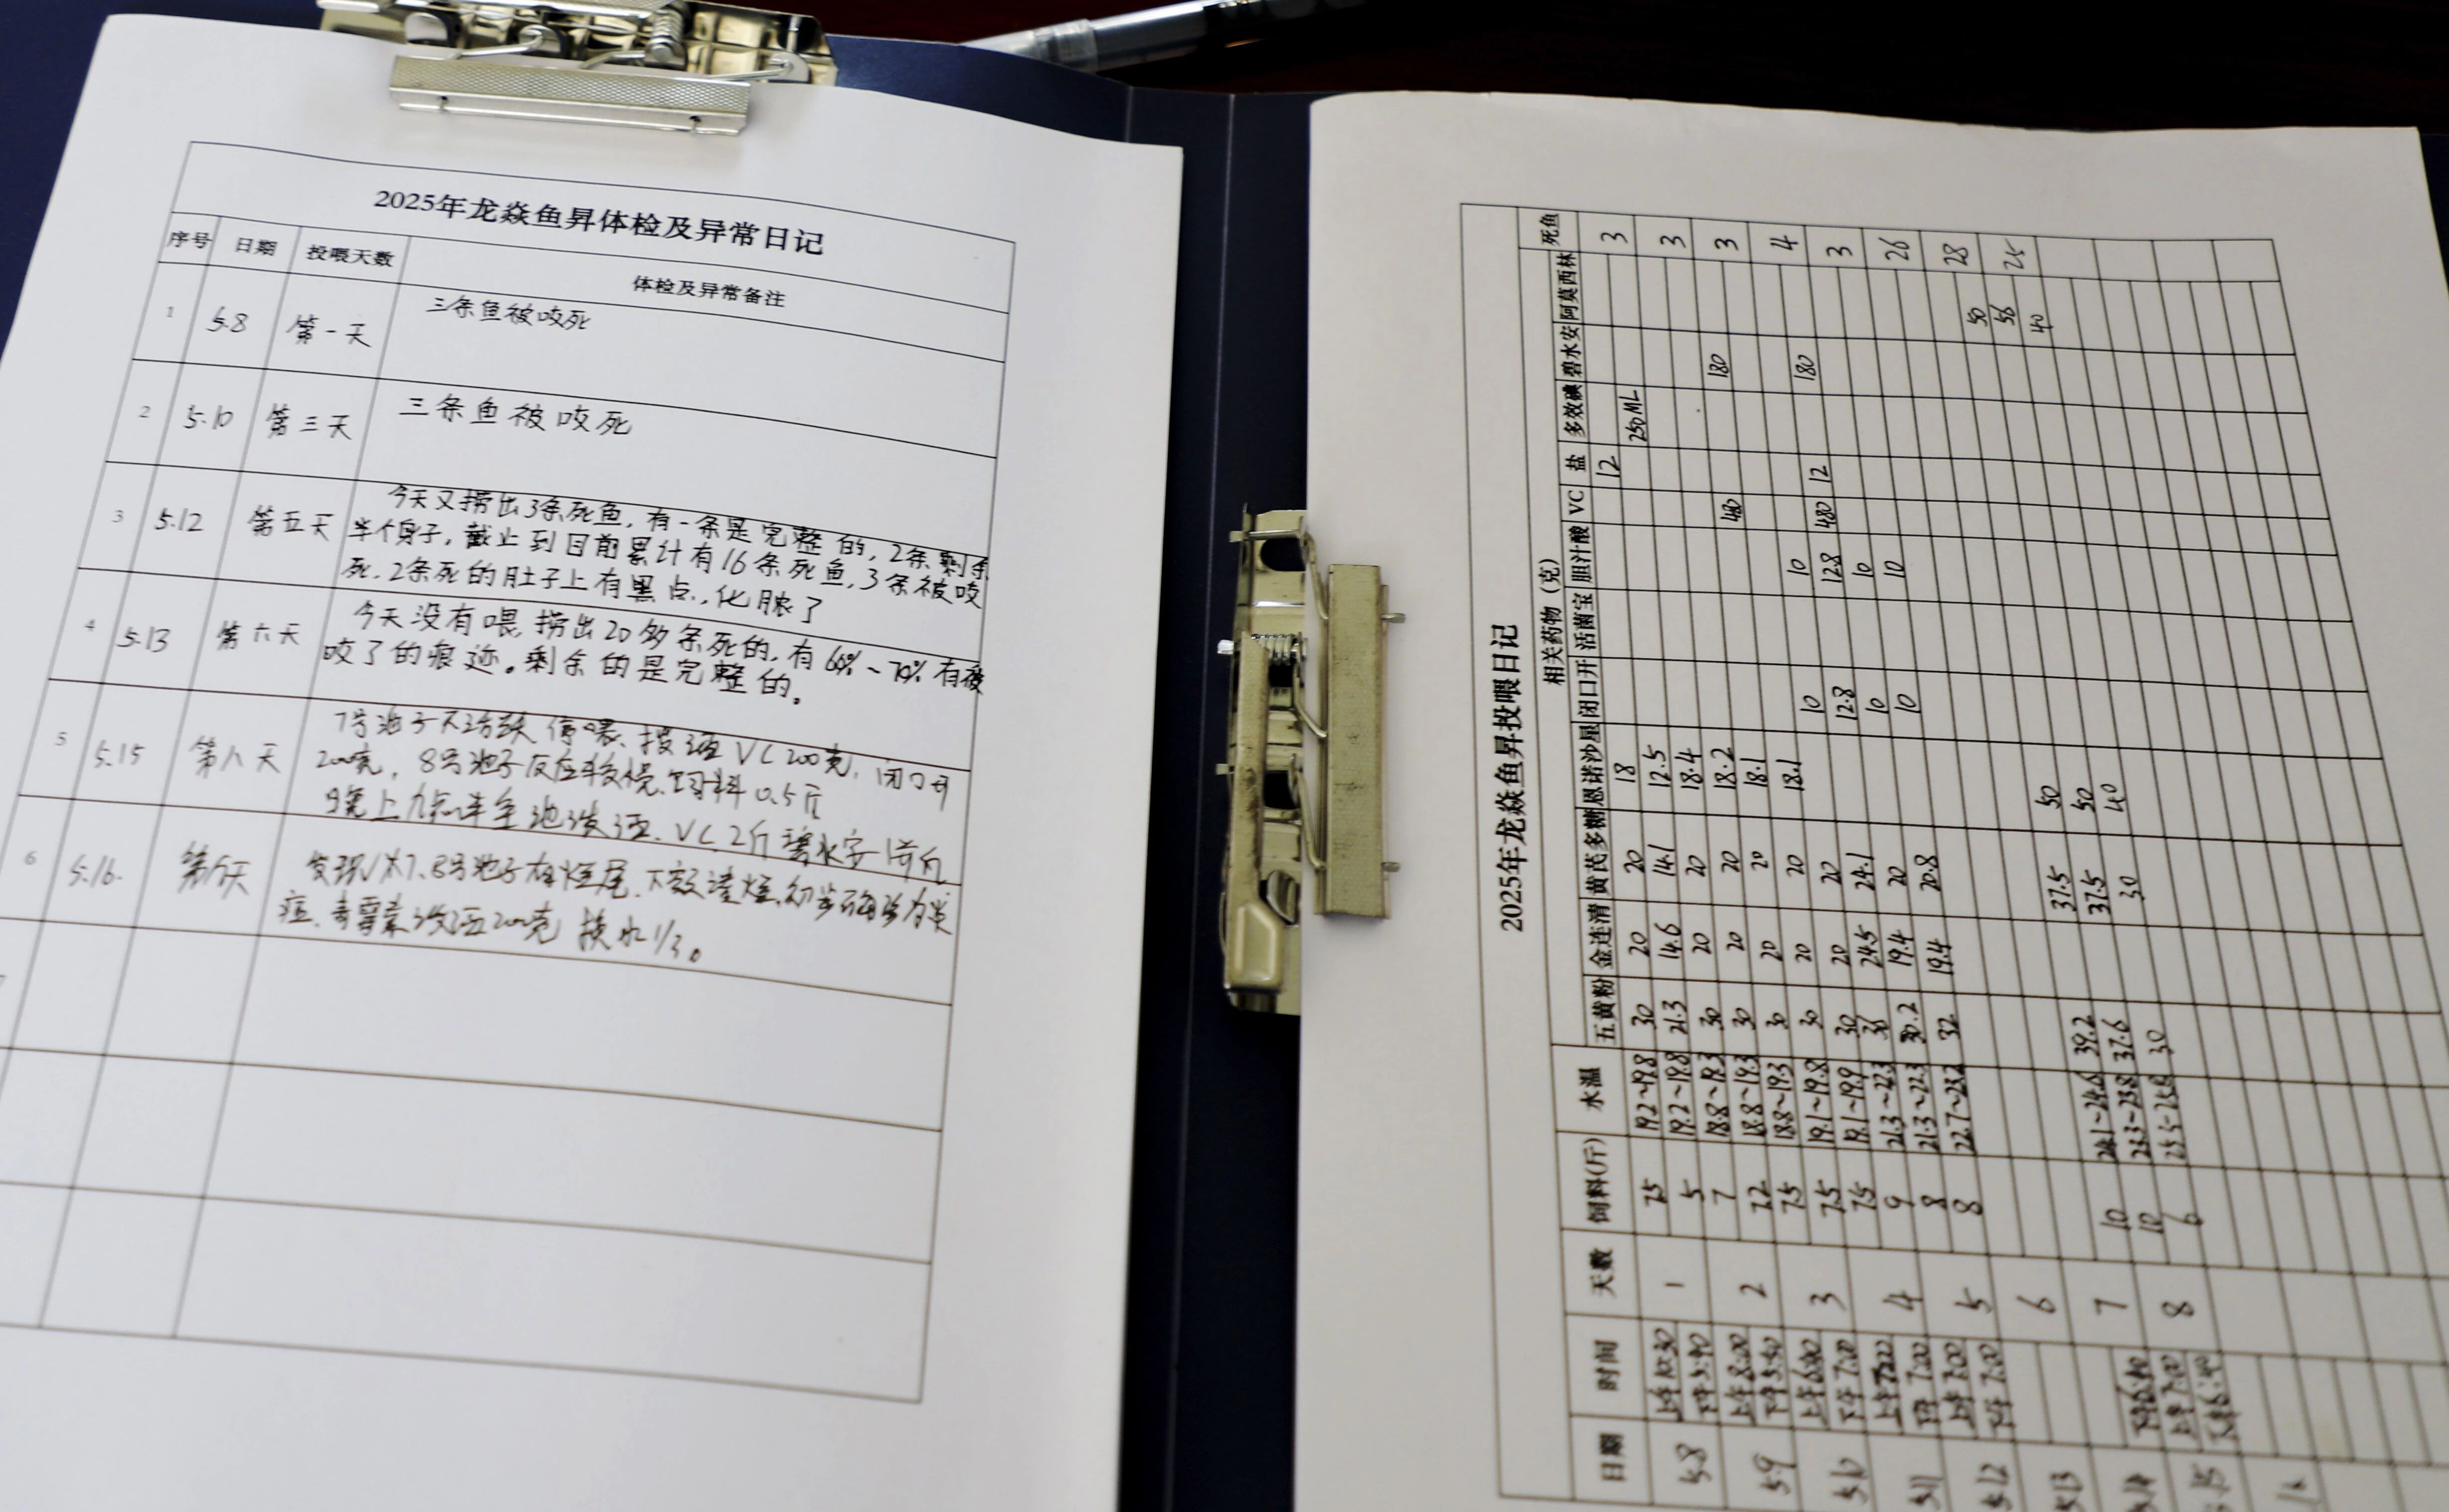 2025年龙焱鱼昇体检及异常日记
序号 日期 投喂天数 体检及异常备注
1 5.8 第一天 三条鱼被咬死
2 5.10 第三天 三条鱼被咬死
3 5.12 第五天 今天又捞出3条死鱼,有一条是完整的,2条剩余
半个身子,截止到目前累计有16条死鱼,3条被咬
死.2条死的肚子上有黑点.,化脓了
4 5.13 第六天 今天没有喂,捞出20多条死的,有60%~70%有被
咬了的痕迹。剩余的是完整的。
5 5.15 第八天 7号池子不活跃 停喂、投洒VC200克,闭口开
200克,8号池子反应较慢.饲料0.5斤
晚上九点半全池泼洒.VC2斤 碧水安一
6 5.16. 第 天 发现 7.8号池子有烂尾.下
换水1/3。
7
2025年龙焱鱼昇投喂日记
日期 时间 天数 饲料(斤) 水温 相关药物(克) 死鱼
五黄粉 金连清 黄芪多糖 恩诺沙星 闭口开 活菌宝 胆汁酸 VC 盐 多效碘 碧水安 阿莫西林
5.8 上午10:30 1 7.5 19.2~19.8 30 20 20 18 12 3
下午5:40 5 19.2~19.8 21.3 14.6 14.1 12.5 250ML
5.9 上午8:00 2 7 18.8~19.3 30 20 20 18.4 3
下午5:40 7.2 18.8~19.3 30 20 20 18.2 480 180
5.10 3 7.5 18.8~19.3 30 20 20 18.1 3
下午7:00 7.5 19.1~19.8 30 20 20 18.1
5.11 上午7:00 4 7.5 19.1~19.9 30 20 20 10 10 180 4
下午7:00 9 21.3~22.3 36 24.5 24.1 12.8 12.8 480 12
5.12 上午7:00 5 8 21.3~22.3 30.2 19.4 20 10 10 3
下午7:00 8 22.7~23.2 32 19.4 20.8 10 10
5.13 6 26
5.14 7 50 28
下午6:40 10 24.1~24.6 39.2 37.5 50 56
5.15 上午7:00 8 10 23.3~23.8 37.6 37.5 50 40 25
6 30 30 40